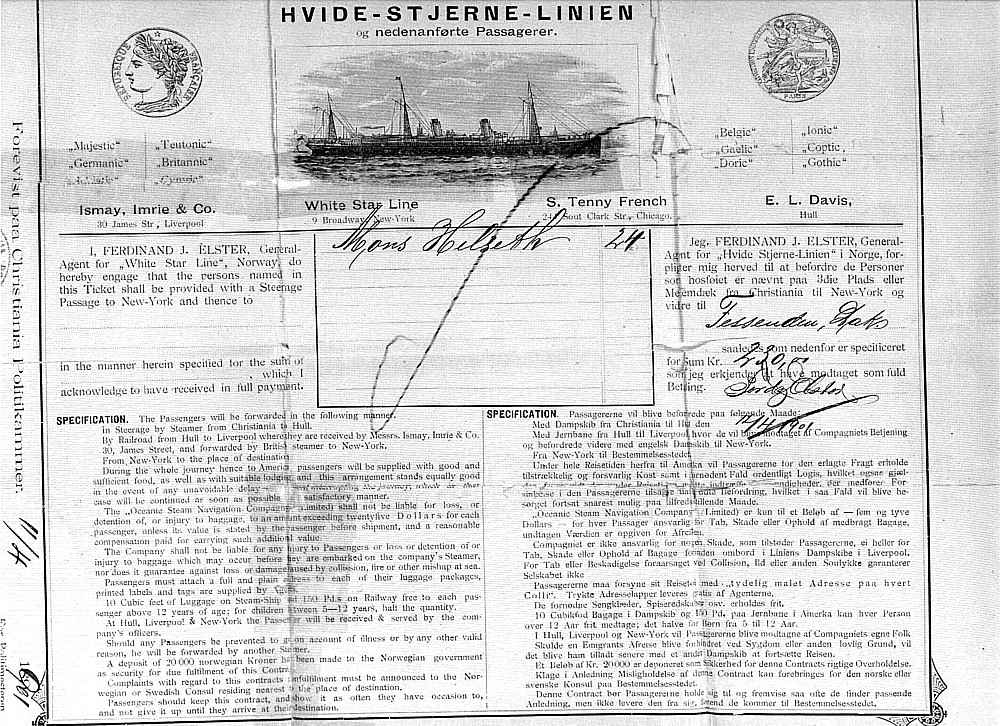 HVIDE-STJERNE-LINIEN
og nedenanførte Passagerer.
RÉPUBLIQUE FRANÇAISE
PARIS
„Majestic" „Teutonic"
„Germanic" „Britannic"
„Adriatic" „Cymric"
Ismay, Imrie & Co.
30 James Str, Liverpool
White Star Line
9 Broadway, New-York
S. Tenny French
244 Sout Clark Str., Chicago.
„Belgic" „Ionic"
„Gaelic" „Coptic,
„Doric" „Gothic"
E. L. Davis,
Hull
Forevist paa Christiania Politikammer.
11/4
1901
I, FERDINAND J. ELSTER, General-
Agent for „White Star Line", Norway, do
hereby engage that the persons named in
this Ticket shall be provided with a Steerage
Passage to New-York and thence to
in the manner herein specified for the sum of
, which I
acknowledge to have received in full payment.
Mons Helseth 24
Jeg, FERDINAND J. ELSTER, General-
Agnt for „Hvide Stjerne-Linien" i Norge, for-
pligter mig herved til at befordre de Personer
som hosføiet er nævnt paa 3die Plads eller
Mellemdæk fra Christiania til New-York og
vidre til
Fessenden, Dak
saaledes som nedenfor er specificeret
for Sum Kr. 230,00
som jeg erkjender at have modtaget som fuld
Betling. Ferd J Elster
11/4 1901
SPECIFICATION. The Passengers will be forwarded in the following manner.
in Steerage by Steamer from Christiania to Hull.
By Railroad from Hull to Liverpool where they are received by Messrs. Ismay, Imrie & Co.
30, James Street, and forwarded by British steamer to New-York.
From New-York to the place of destination
During the whole journey hence to America passengers will be supplied with good and
sufficient food, as well as with suitable lodging and this arrangement stands equally good
in the event of any unavoidable delay
case will be continued or soon as possible satisfactory manner.
The „Oceanic Steam Navigation Company (Limited) shall not be liable for loss, or
detention of, or injury to baggage, to an amount exceeding twentyfive Dollars for each
passenger, unless its value is stated by the passenger before shipment, and a reasonable
compensation paid for carrying such additional value.
The Company shall not be liable for any injury to Passengers or loss or detention of or
injury to baggage which may occur before they are embarked on the company's Steamer,
nor does it guarantee against loss or damage caused by collision, fire or other mishap at sea.
Passengers must attach a full and plain adress to each of their luggage packages,
printed labels and tags are supplied by
10 Cubic feet of Luggage on Steam-Ship and 150 Pd.s on Railway free to each pas-
senger above 12 years of age; for children between 5—12 years, half the quantity.
At Hull, Liverpool & New-York the Passengers will be received & served by the com-
pany's officers.
Should any Passengers be prevented to go on account of illness or by any other valid
reason, he will be forwarded by another Steamer.
A deposit of 20 000 norwegian Kroner has been made to the Norwegian government
as security for due fulfilment of this Contract.
Complaints with regard to this contracts unfulfilment must be announced to the Nor-
wegian or Swedish Consul residing nearest to the place of destination.
Passengers should keep this contract, and show it as often they have occasion to,
and not give it up until they arrive at their destination.
SPECIFICATION. Passagererne vil blive beforede paa følgende Maade:
Med Dampskib fra Christiania til Hull den
Med Jernbane fra Hull til Liverpool, hvor de vil blive modtaget af Compagniets Betjening
og befordrede videre med engelsk Dampskib til New-York.
Fra New-York til Bestemmelsesstedet.
Under hele Reisetiden herfra til Amerika vil Passagererne for den erlagte Fragt erholde
tilstrækkelig og forsvarlig Kost samt fornødent Fald ordentligt Logis, hvilket ogsaa gjæl-
der, der medfører For-
sinkelse i den Passagererne tilsagte Befordring, hvilket i saa Fald vil blive be-
sørget fortsat snarest mulig paa tilfredsstillende Maade.
„Oceanic Steam Navigation Company" (Limited) er kun til et Beløb af — fem og tyve
Dollars — for hver Passager ansvarlig for Tab, Skade eller Ophold af medbragt Bagage,
undtagen Værdien er opgiven for Afreisen.
Compagniet er ikke ansvarlig for nogen Skade, som tilstøder Passagererne, ei heller for
Tab, Skade eller Ophold af Bagage forinden ombord i Liniens Dampskibe i Liverpool.
For Tab eller Beskadigelse foraarsaget ved Collision, Ild eller anden Soulykke garanterer
Selskabet ikke
Passagererne maa forsyne sit Reisetøi med „tydelig malet Adresse paa hvert
Colli". Trykte Adresselapper leveres gratis af Agenterne.
De fornødne Sengklæder, Spiseredskaber osv. erholdes frit.
10 Cubikfod Bagage i Dampskib og 150 Pd. paa Jernbane i Amerka kan hver Person
over 12 Aar frit medtage; det halve for Børn fra 5 til 12 Aar.
I Hull, Liverpool og New-York vil Passagererne blive modtagne af Compagniets egne Folk
Skulde en Emigrants Afreise blive forhindret ved Sygdom eller anden lovlig Grund, vil
det blive ham tilladt senere med et andet Dampskib at fortsætte Reisen.
Et Beløb af Kr. 20 000 er deponeret som Sikkerhed for denne Contracts rigtige Overholdelse.
Klage i Anledning Misligholdelse af denne Contract kan forebringes for den norske eller
svenske Konsul paa Bestemmelsesstedet.
Denne Contract bør Passagererne holde og til og fremvise saa ofte de finder passende
Anledning, men ikke levere den fra sig, førend de kommer til Bestemmelsesstedet.